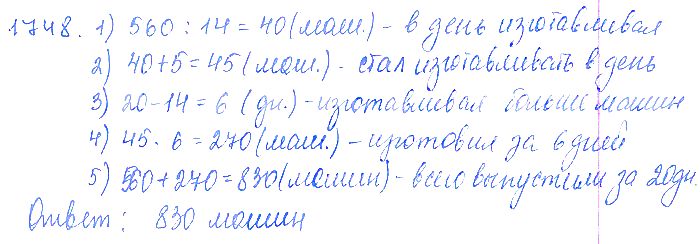 1748. 1) 560 : 14 = 40 (маш.) - в день изготавливал
2) 40+5 = 45 (маш.) - стал изготавливать в день
3) 20-14 = 6 (дн.) - изготавливал больше машин
4) 45 · 6 = 270 (маш.) - изготовил за 6 дней
5) 560 + 270 = 830 (машин) - всего выпустили за 20 дн.
Ответ: 830 машин